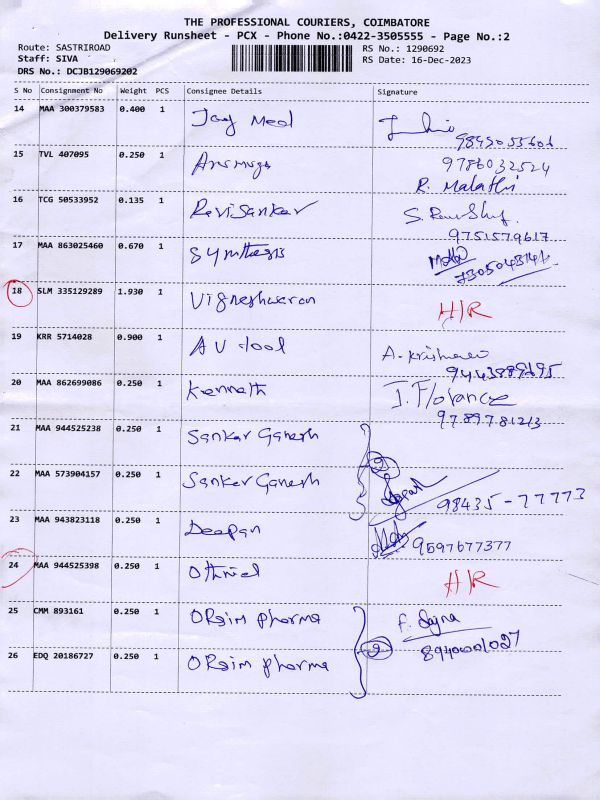 THE PROFESSIONAL COURIERS, COIMBATORE
Delivery Runsheet - PCX - Phone No.:0422-3505555 - Page No.:2
Route: SASTRIROAD
RS No.: 1290692
Staff: SIVA
RS Date: 16-Dec-2023
DRS No.: DCJB129069202
S No Consignment No Weight PCS Consignee Details Signature
14 MAA 300379583 0.400 1
15 TVL 407095 0.250 1 9786032524
R. Malathi
16 TCG 50533952 0.135 1 RaviSankar
9751579617
17 MAA 863025460 0.670 1 Synthesis
18 SLM 335129289 1.930 1 Vigneshwaran H/R
19 KRR 5714028 0.900 1 AV tool
20 MAA 862699086 0.250 1 Kenneth J. Florance
9789781213
21 MAA 944525238 0.250 1 Sankar Ganesh
2
22 MAA 573904157 0.250 1 Sanker Ganesh
98435-77773
23 MAA 943823118 0.250 1 Deepan 9597677377
24 MAA 944525398 0.250 1 Othniel H/R
25 CMM 893161 0.250 1 ORaim pharma F. Sajna
2
26 EDQ 20186727 0.250 1 ORaim pharma